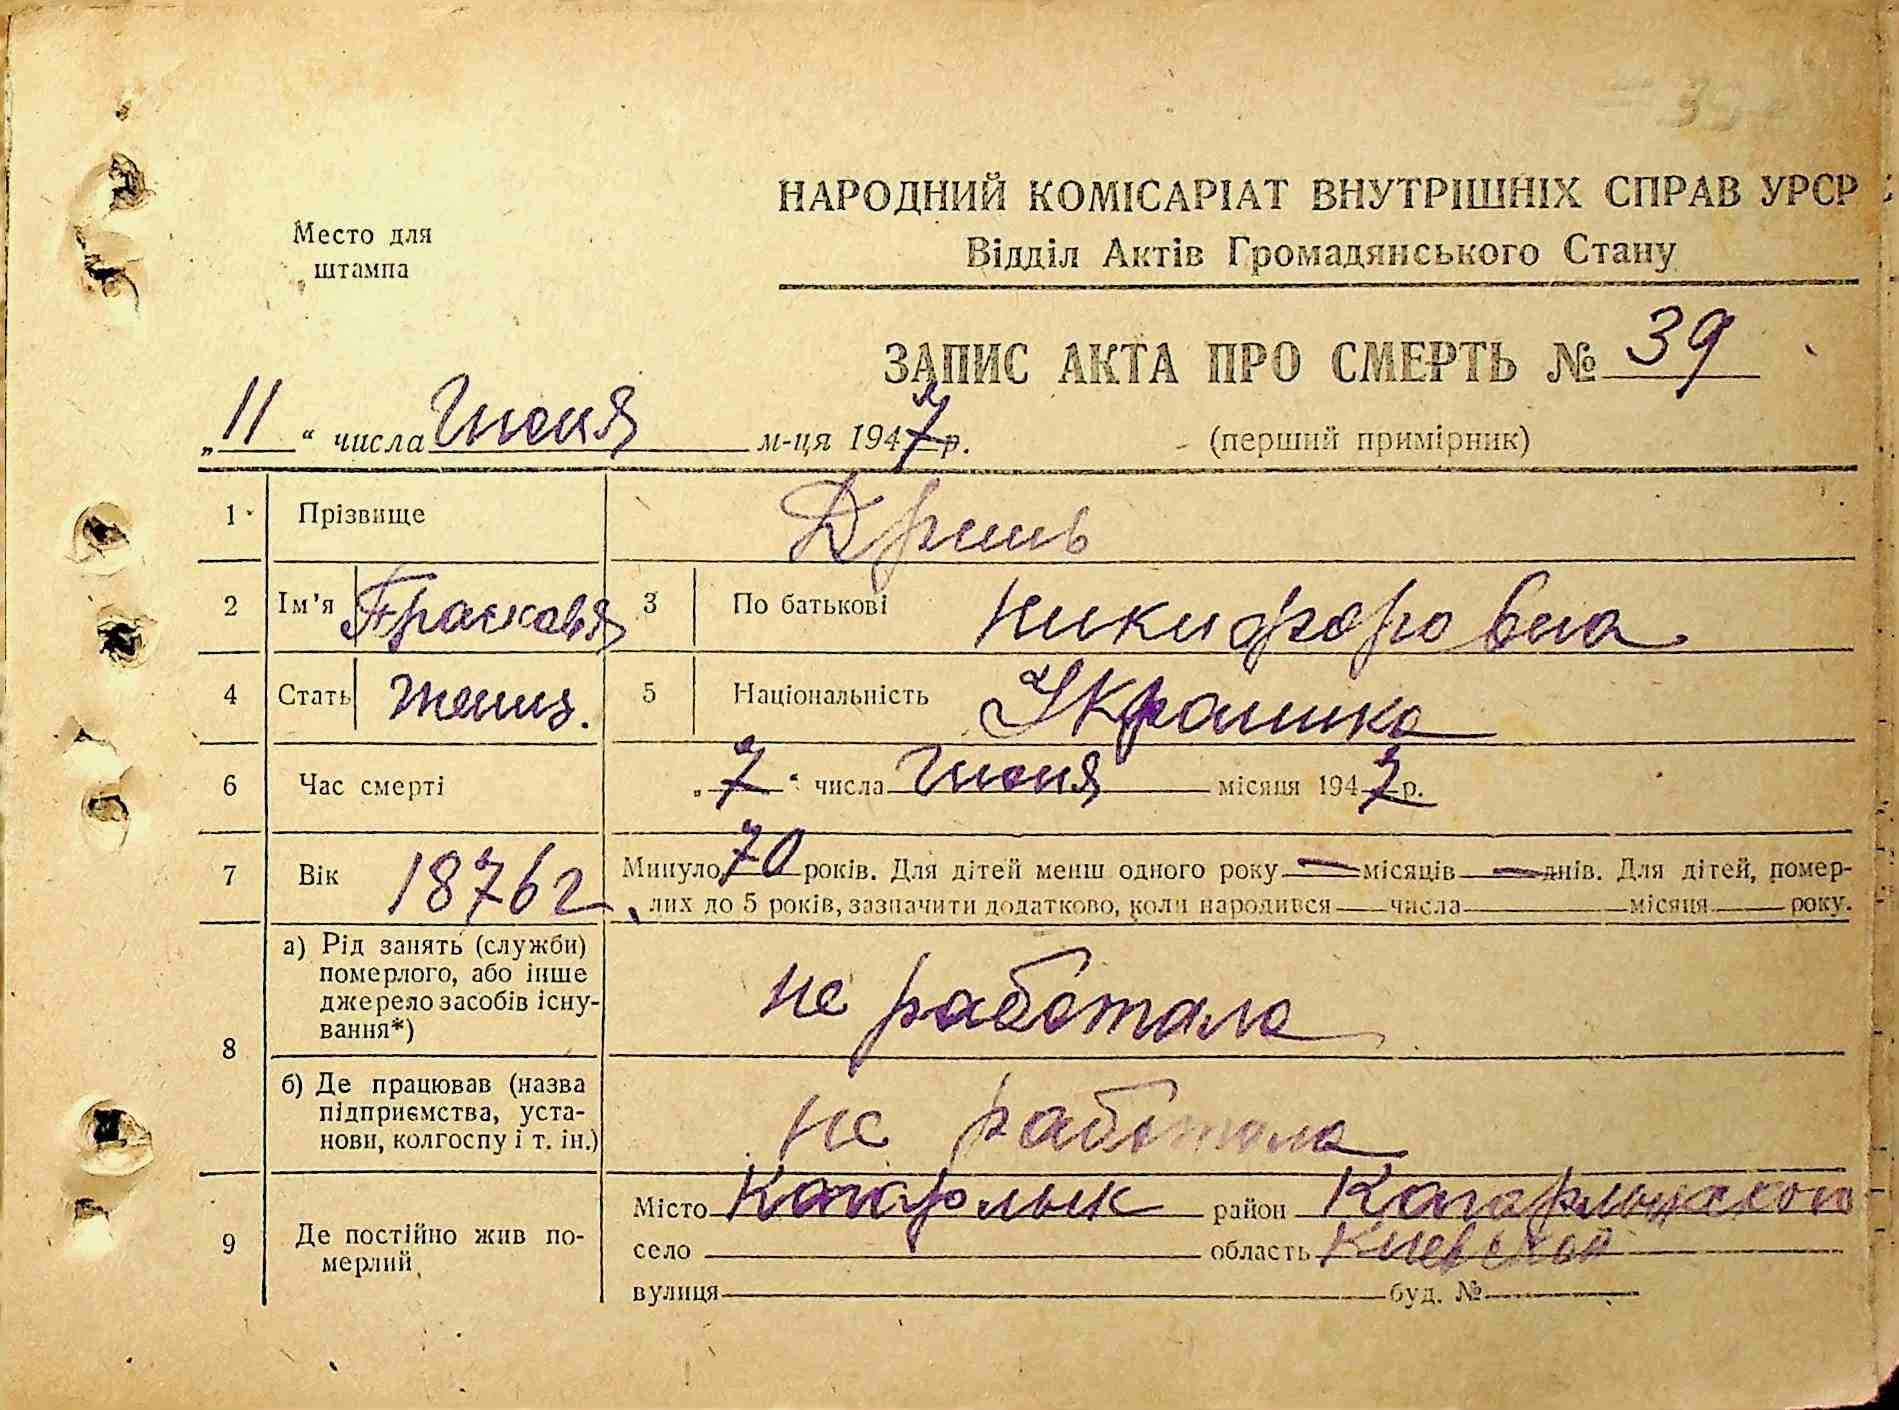 НАРОДНИЙ КОМІСАРІАТ ВНУТРІШНІХ СПРАВ УРСР
Відділ Актів Громадянського Стану
Место для
штампа
ЗАПИС АКТА ПРО СМЕРТЬ № 39
„11“ числа Июня м-ця 1947 р. (перший примірник)
1 Прізвище Дринь
2 Ім'я Прасковья 3 По батькові Никифоровна
4 Стать женщ. 5 Національність Украинка
6 Час смерті „7“ числа Июня місяця 1947 р.
7 Вік 1876 г Минуло 70 років. Для дітей менш одного року — місяців — днів. Для дітей, помер-
лих до 5 років, зазначити додатково, коли народився числа місяця року.
8 а) Рід занять (служби)
померлого, або інше
джерело засобів існу-
вання*) не работала
б) Де працював (назва
підприємства, уста-
нови, колгоспу і т. ін.) не работала
9 Де постійно жив по-
мерлий
Місто Кагарлык район Кагарлыцкого
село область Киевской
вулиця буд. №